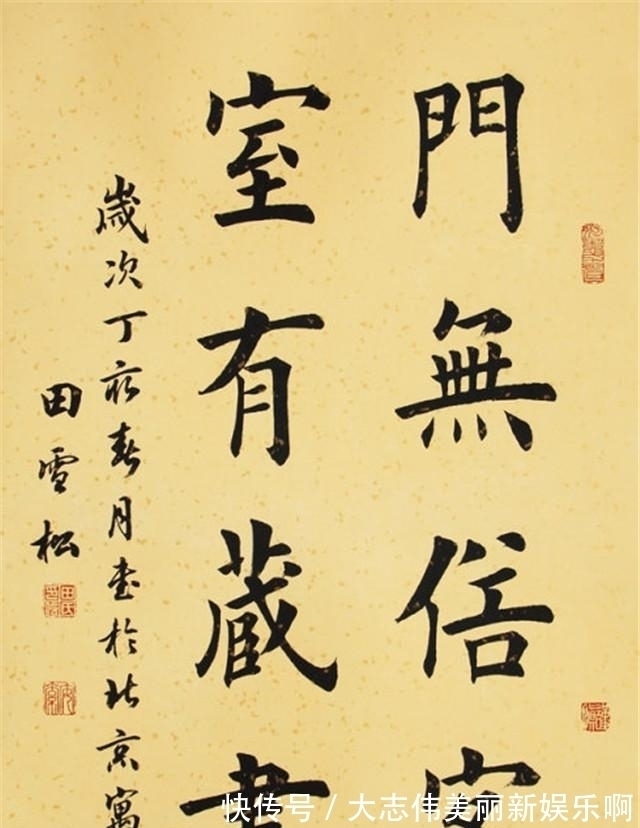 門無俗
室有蔵書
歲次丁亥春月書於北京寓
田雪松
快传号/大志伟美丽新娱乐啊